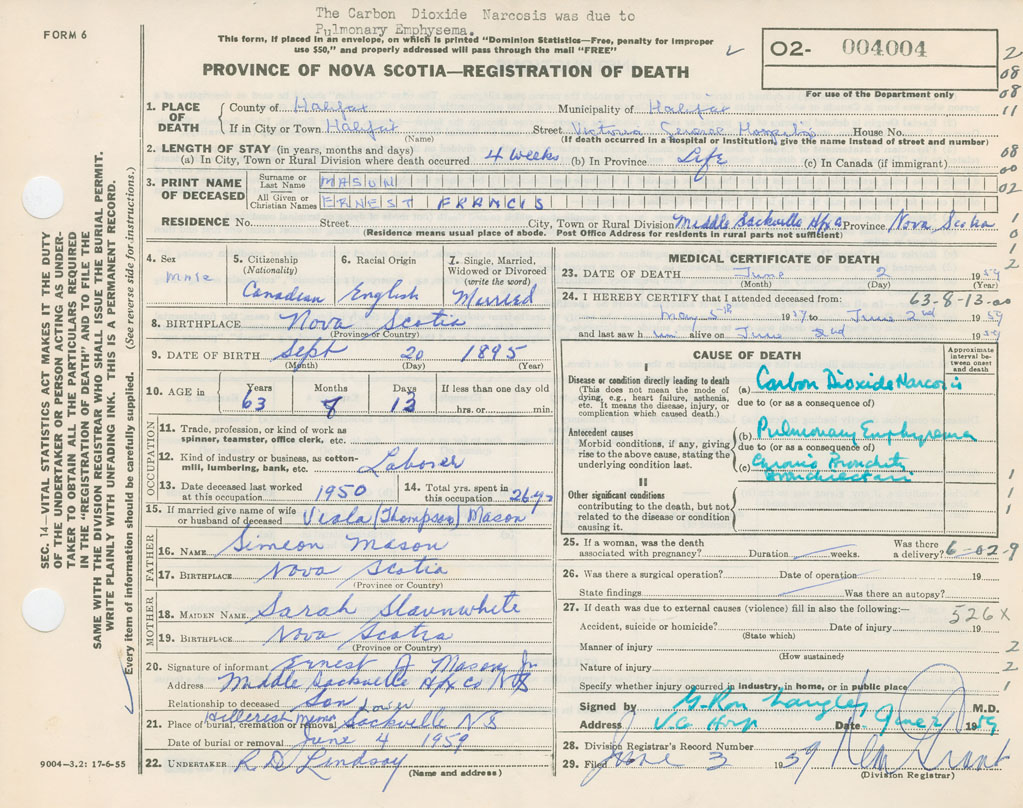 The Carbon Dioxide Narcosis was due to
Pulmonary Emphysema.
FORM 6
This form, if placed in an envelope, on which is printed "Dominion Statistics—Free, penalty for improper
use $50," and properly addressed will pass through the mail "FREE"
O2- 004004
For use of the Department only
PROVINCE OF NOVA SCOTIA—REGISTRATION OF DEATH
1. PLACE OF DEATH { County of Halifax Municipality of Halifax
If in City or Town Halifax (Name) Street Victoria General Hospital House No.
(If death occurred in a hospital or institution, give the name instead of street and number)
2. LENGTH OF STAY (in years, months and days)
(a) In City, Town or Rural Division where death occurred 4 weeks (b) In Province Life (c) In Canada (if immigrant)
3. PRINT NAME OF DECEASED { Surname or Last Name MASON
All Given or Christian Names ERNEST FRANCIS
RESIDENCE No. Street City, Town or Rural Division Middle Sackville Hfx Co Province Nova Scotia
(Residence means usual place of abode. Post Office Address for residents in rural parts not sufficient)
4. Sex male
5. Citizenship (Nationality) Canadian
6. Racial Origin English
7. Single, Married, Widowed or Divorced (write the word) Married
8. BIRTHPLACE Nova Scotia
(Province or Country)
9. DATE OF BIRTH Sept 20 1895
(Month) (Day) (Year)
10. AGE in Years 63 Months 8 Days 13 If less than one day old hrs. or min.
OCCUPATION
11. Trade, profession, or kind of work as
spinner, teamster, office clerk, etc.
12. Kind of industry or business, as cotton-
mill, lumbering, bank, etc. Laborer
13. Date deceased last worked at this occupation 1950
14. Total yrs. spent in this occupation 26 yrs
15. If married give name of wife
or husband of deceased Viola (Thompson) Mason
FATHER
16. NAME Simeon Mason
17. BIRTHPLACE Nova Scotia
(Province or Country)
MOTHER
18. MAIDEN NAME Sarah Slaunwhite
19. BIRTHPLACE Nova Scotia
(Province or Country)
20. Signature of informant Ernest J Mason Jr
Address Middle Sackville Hfx Co NS
Relationship to deceased Son
21. Place of burial, cremation or removal Hillcrest Lower Sackville NS
Date of burial or removal June 4 1959
22. UNDERTAKER R D Lindsay
(Name and address)
MEDICAL CERTIFICATE OF DEATH
23. DATE OF DEATH June 2 1959
(Month) (Day) (Year)
24. I HEREBY CERTIFY that I attended deceased from: 63-8-13-00
May 5th 1959 to June 2nd 1959
and last saw him alive on June 2nd 1959
CAUSE OF DEATH
Approximate interval between onset and death
I
Disease or condition directly leading to death
(This does not mean the mode of
dying, e.g., heart failure, asthenia,
etc. It means the disease, injury, or
complication which caused death.)
(a) Carbon Dioxide Narcosis
due to (or as a consequence of)
Antecedent causes
Morbid conditions, if any, giving
rise to the above cause, stating the
underlying condition last.
(b) Pulmonary Emphysema
due to (or as a consequence of)
(c)
II
Other significant conditions
contributing to the death, but not
related to the disease or condition
causing it.
25. If a woman, was the death
associated with pregnancy? Duration weeks. Was there a delivery? 6-02-9
26. Was there a surgical operation? Date of operation 19
State findings Was there an autopsy?
27. If death was due to external causes (violence) fill in also the following:— 526X
Accident, suicide or homicide? Date of injury 19
(State which)
Manner of injury
(How sustained)
Nature of injury
Specify whether injury occurred in industry, in home, or in public place
Signed by G. Ron Langley M.D.
Address V.G. Hosp Date June 2, 1959
28. Division Registrar's Record Number
29. Filed June 3 1959 Grant
(Division Registrar)
SEC. 14—VITAL STATISTICS ACT MAKES IT THE DUTY
OF THE UNDERTAKER OR PERSON ACTING AS UNDER-
TAKER TO OBTAIN ALL THE PARTICULARS REQUIRED
IN THE "REGISTRATION OF DEATH" AND TO FILE THE
SAME WITH THE DIVISION REGISTRAR WHO SHALL ISSUE THE BURIAL PERMIT.
WRITE PLAINLY WITH UNFADING INK. THIS IS A PERMANENT RECORD.
Every item of information should be carefully supplied. (See reverse side for instructions.)
9004—3.2: 17-6-55
2
08
08
11
08
00
02
1
0
1
2
1
1
1
2
2
1